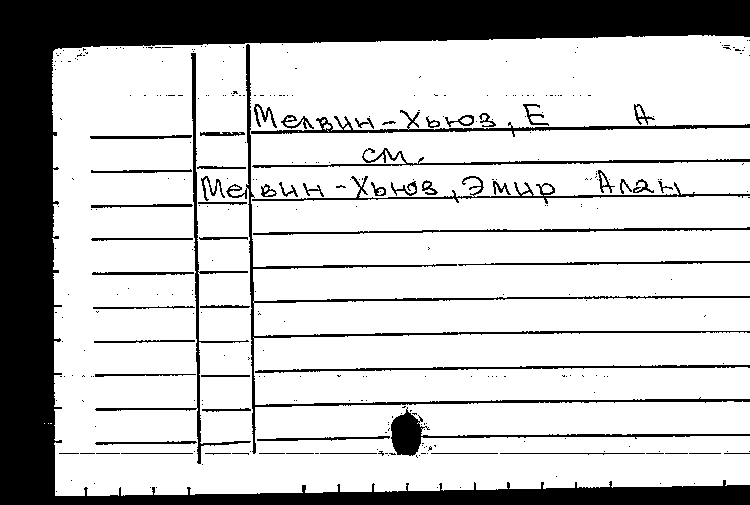 Мелвин-Хьюз, Е А
см.
Мелвин-Хьюз, Эмир Алан